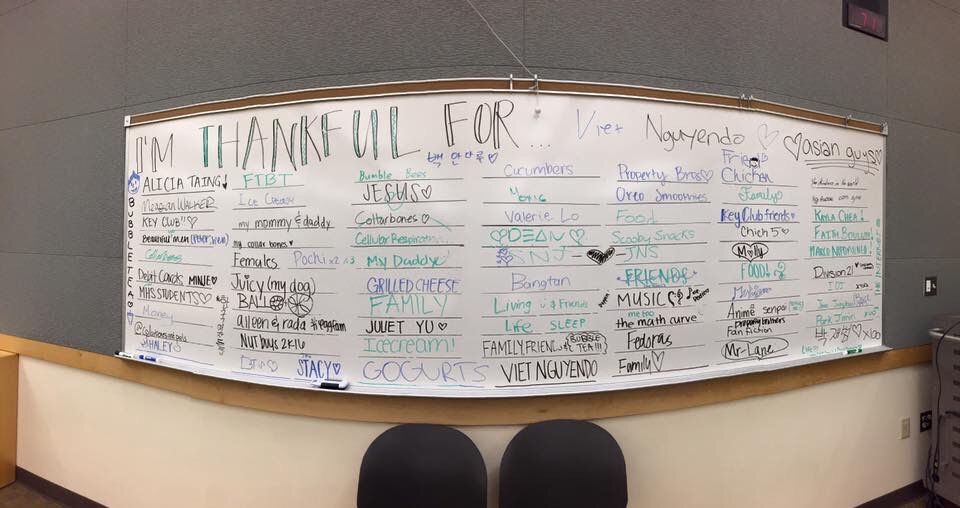 I'M THANKFUL FOR... Viet Nguyendo ♡
♡asian guys♡
71
BUBBLE TEA
ALICIA TAING!
Meagan WALKER
KEY CLUB!!♡
Beautiful men
Collarbones
Debit Cards MINJE♡
MHS STUDENTS♡
Money
HALEY
FTBT
Ice Cream
my mommy & daddy
my collar bones♥
Females Pochi x2 <3
Juicy (my dog)
BALL
aileen & rada
Nut buys 2K16
STACY♡
Bumble Bees
JESUS♡
Collarbones♡
Cellular Respiration
My Daddy
GRILLED CHEESE
FAMILY
JULIET YU♡
Icecream!
GOGURTS
Cucumbers
Valerie Lo
♡DEAN♡
SNJ
Bangtan
Living & Friends
Life SLEEP
FAMILY FRIENDS BUBBLE TEA!!!
VIET NGUYENDO
Property Bros♡
Oreo Smoothies
Food
Scooby Snacks
JNS
FRIENDS
MUSIC
me too
the math curve
Fedoras
Family♡
Fried Chicken
Family
Key Club friends♥
Chich 5♡
Molly
FOOD!
Anime senpai
property brothers
Fan fiction
Mr. Lane
KAYLA CHEA!
FAITH
MARCO
Division 21
IOI
Park Jimin x100
x100